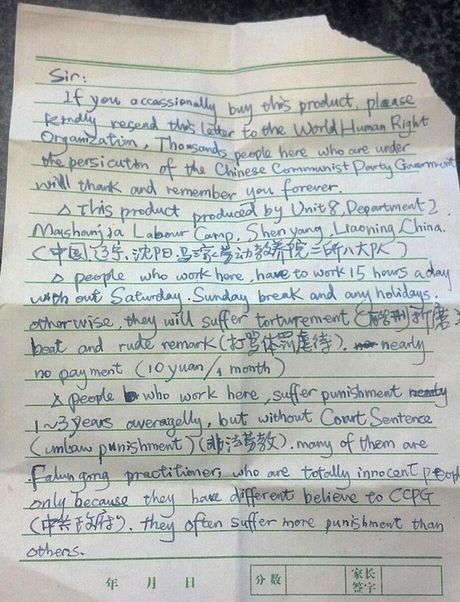 Sir:
If you occassionally buy this product, please
kindly resend this letter to the World Human Right
Organization, Thousands people here who are under
the persicution of the Chinese Communist Party Government
will thank and remember you forever.
△ This product produced by Unit 8, Department 2,
Mashanjia Labour Camp, Shen yang, Liaoning, China.
(中国,辽宁,沈阳,马三家劳动教养院二所八大队)
△ people who work here, have to work 15 hours a day
with out Saturday, Sunday break and any holidays,
otherwise, they will suffer torturement (酷刑折磨),
beat and rude remark (打骂体罚虐待). nearly
no payment (10 yuan/1 month)
△ people who work here, suffer punishment
1~3 years averagelly, but without Court Sentence
(unlaw punishment) (非法劳教). many of them are
Falun gong practitioner, who are totally innocent people
only because they have different believe to CCPG
(中共政府), they often suffer more punishment than
others.
年 月 日
分数
家长
签字